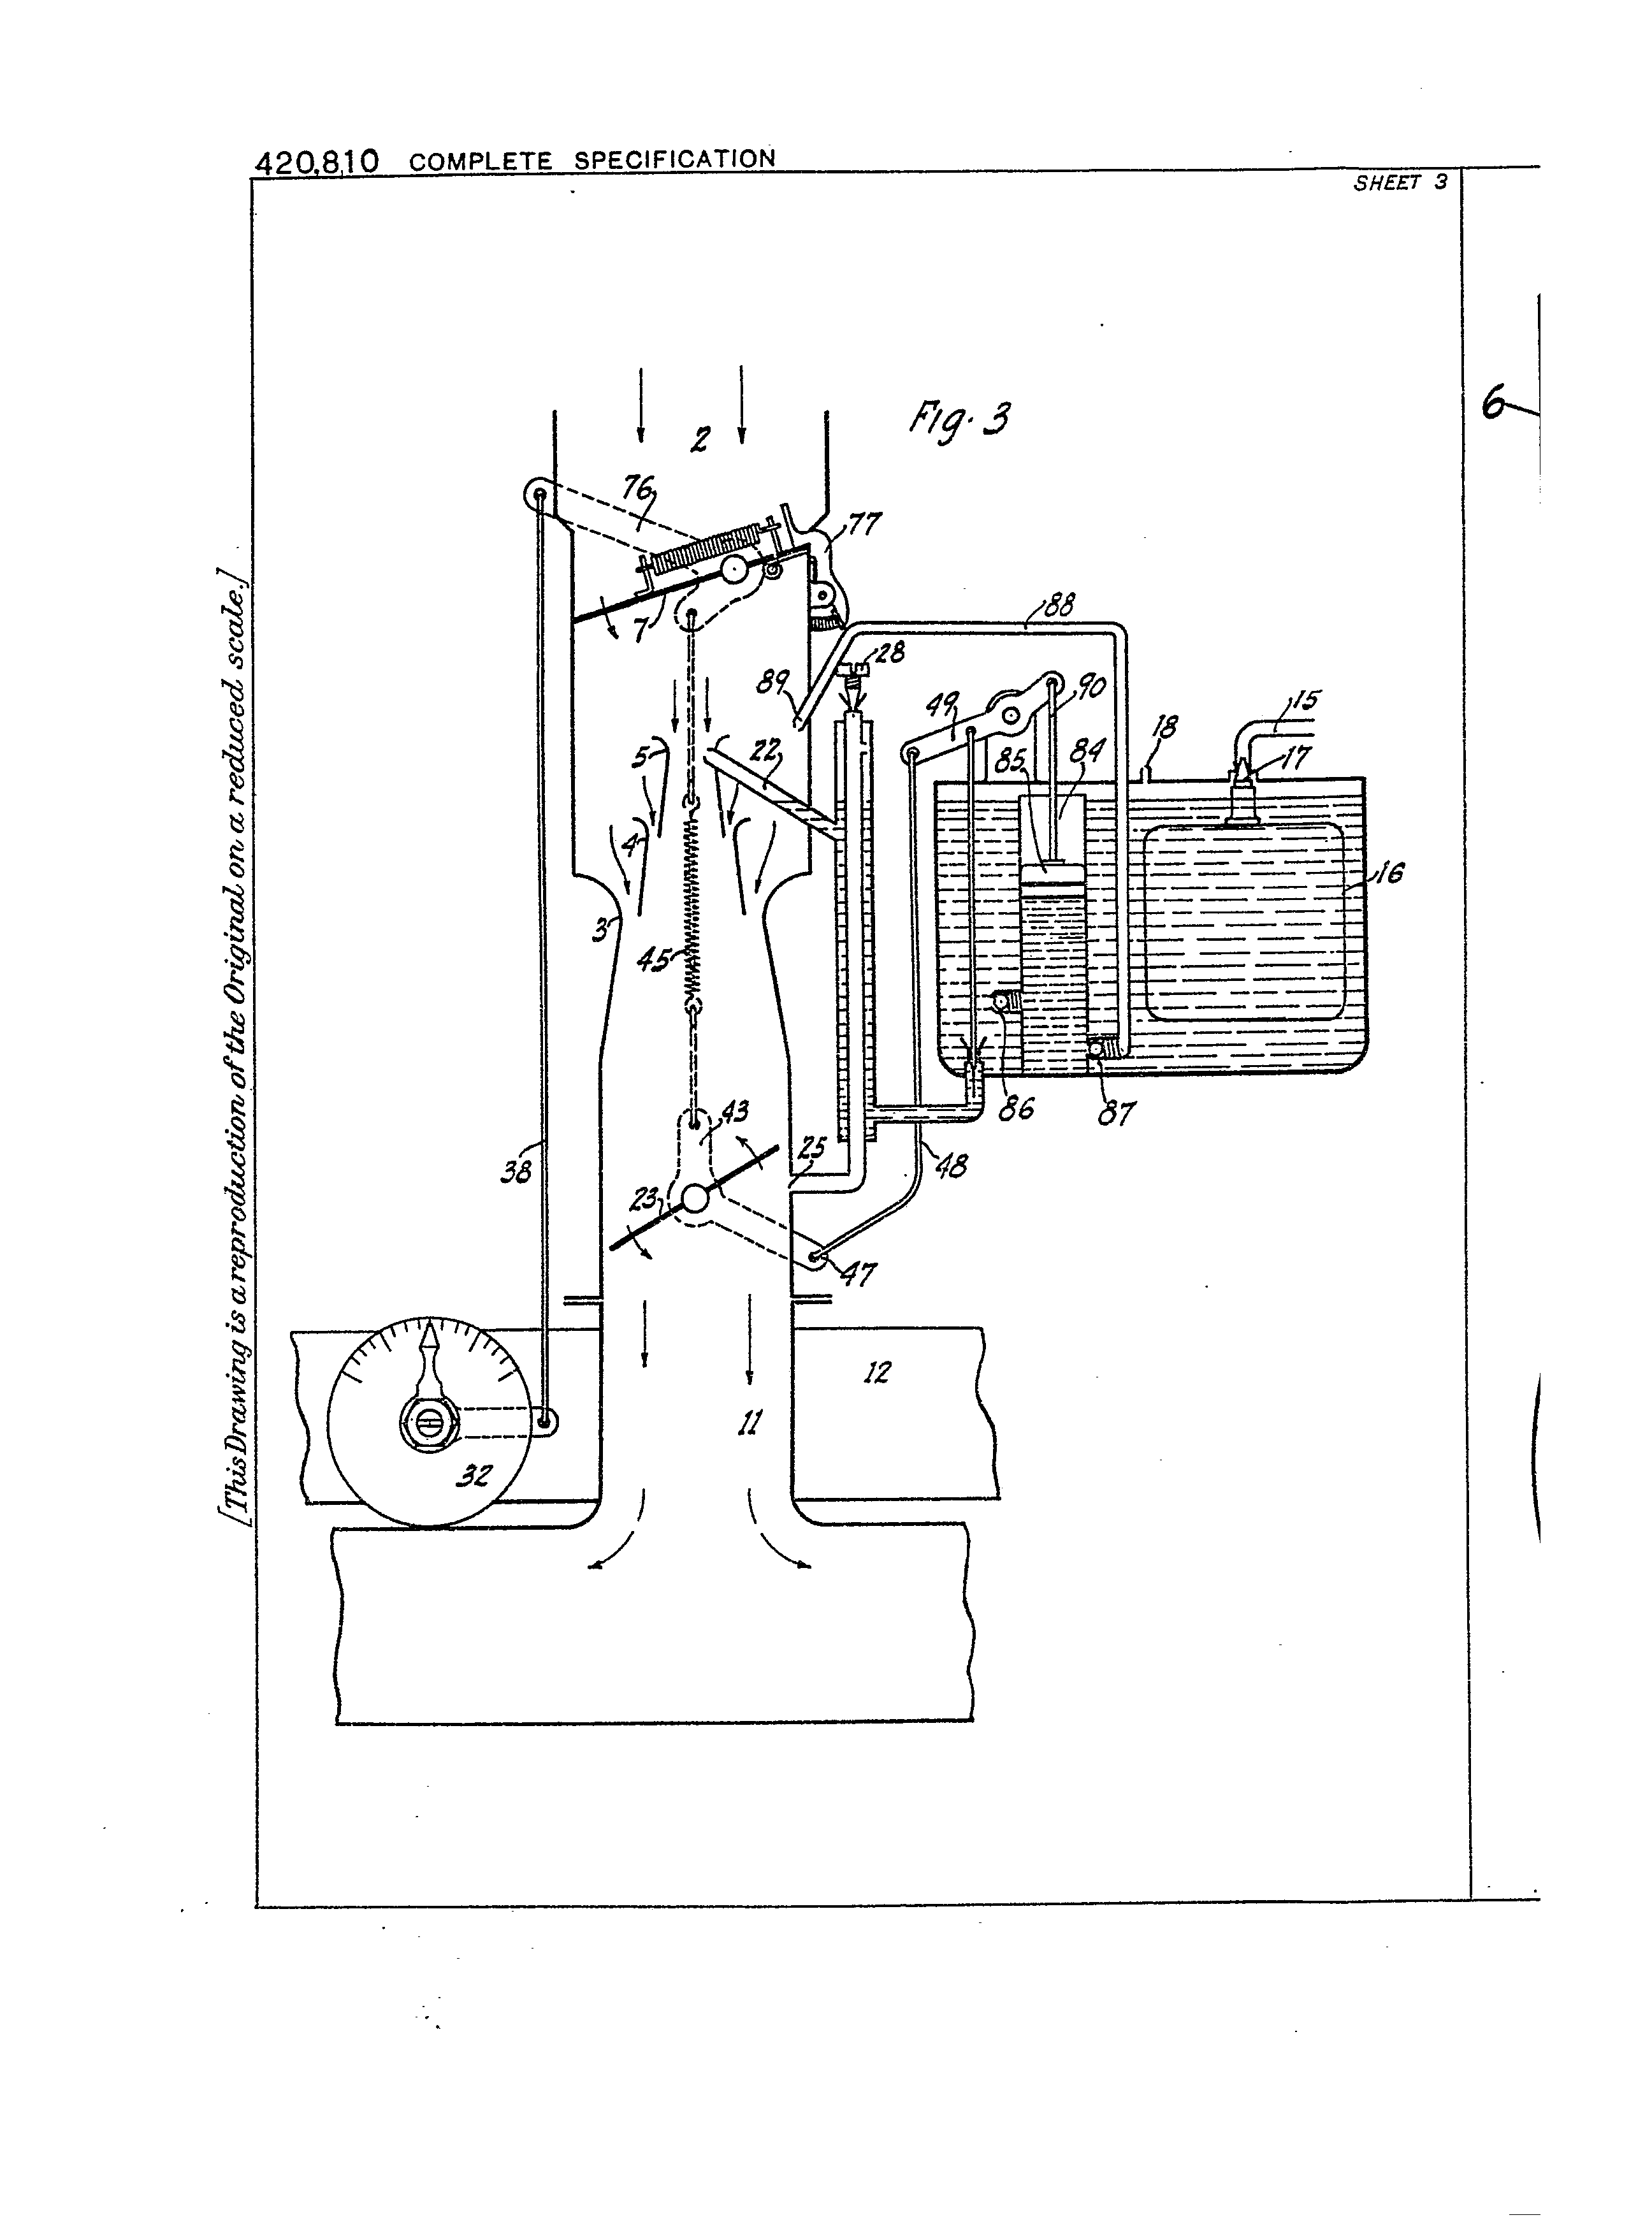 420,810 COMPLETE SPECIFICATION
SHEET 3
[This Drawing is a reproduction of the Original on a reduced scale.]
Fig. 3
6
2
76
77
7
88
28
89
90
49
15
18
5
22
85
84
17
4
16
3
45
86
87
43
25
48
38
23
47
12
11
32